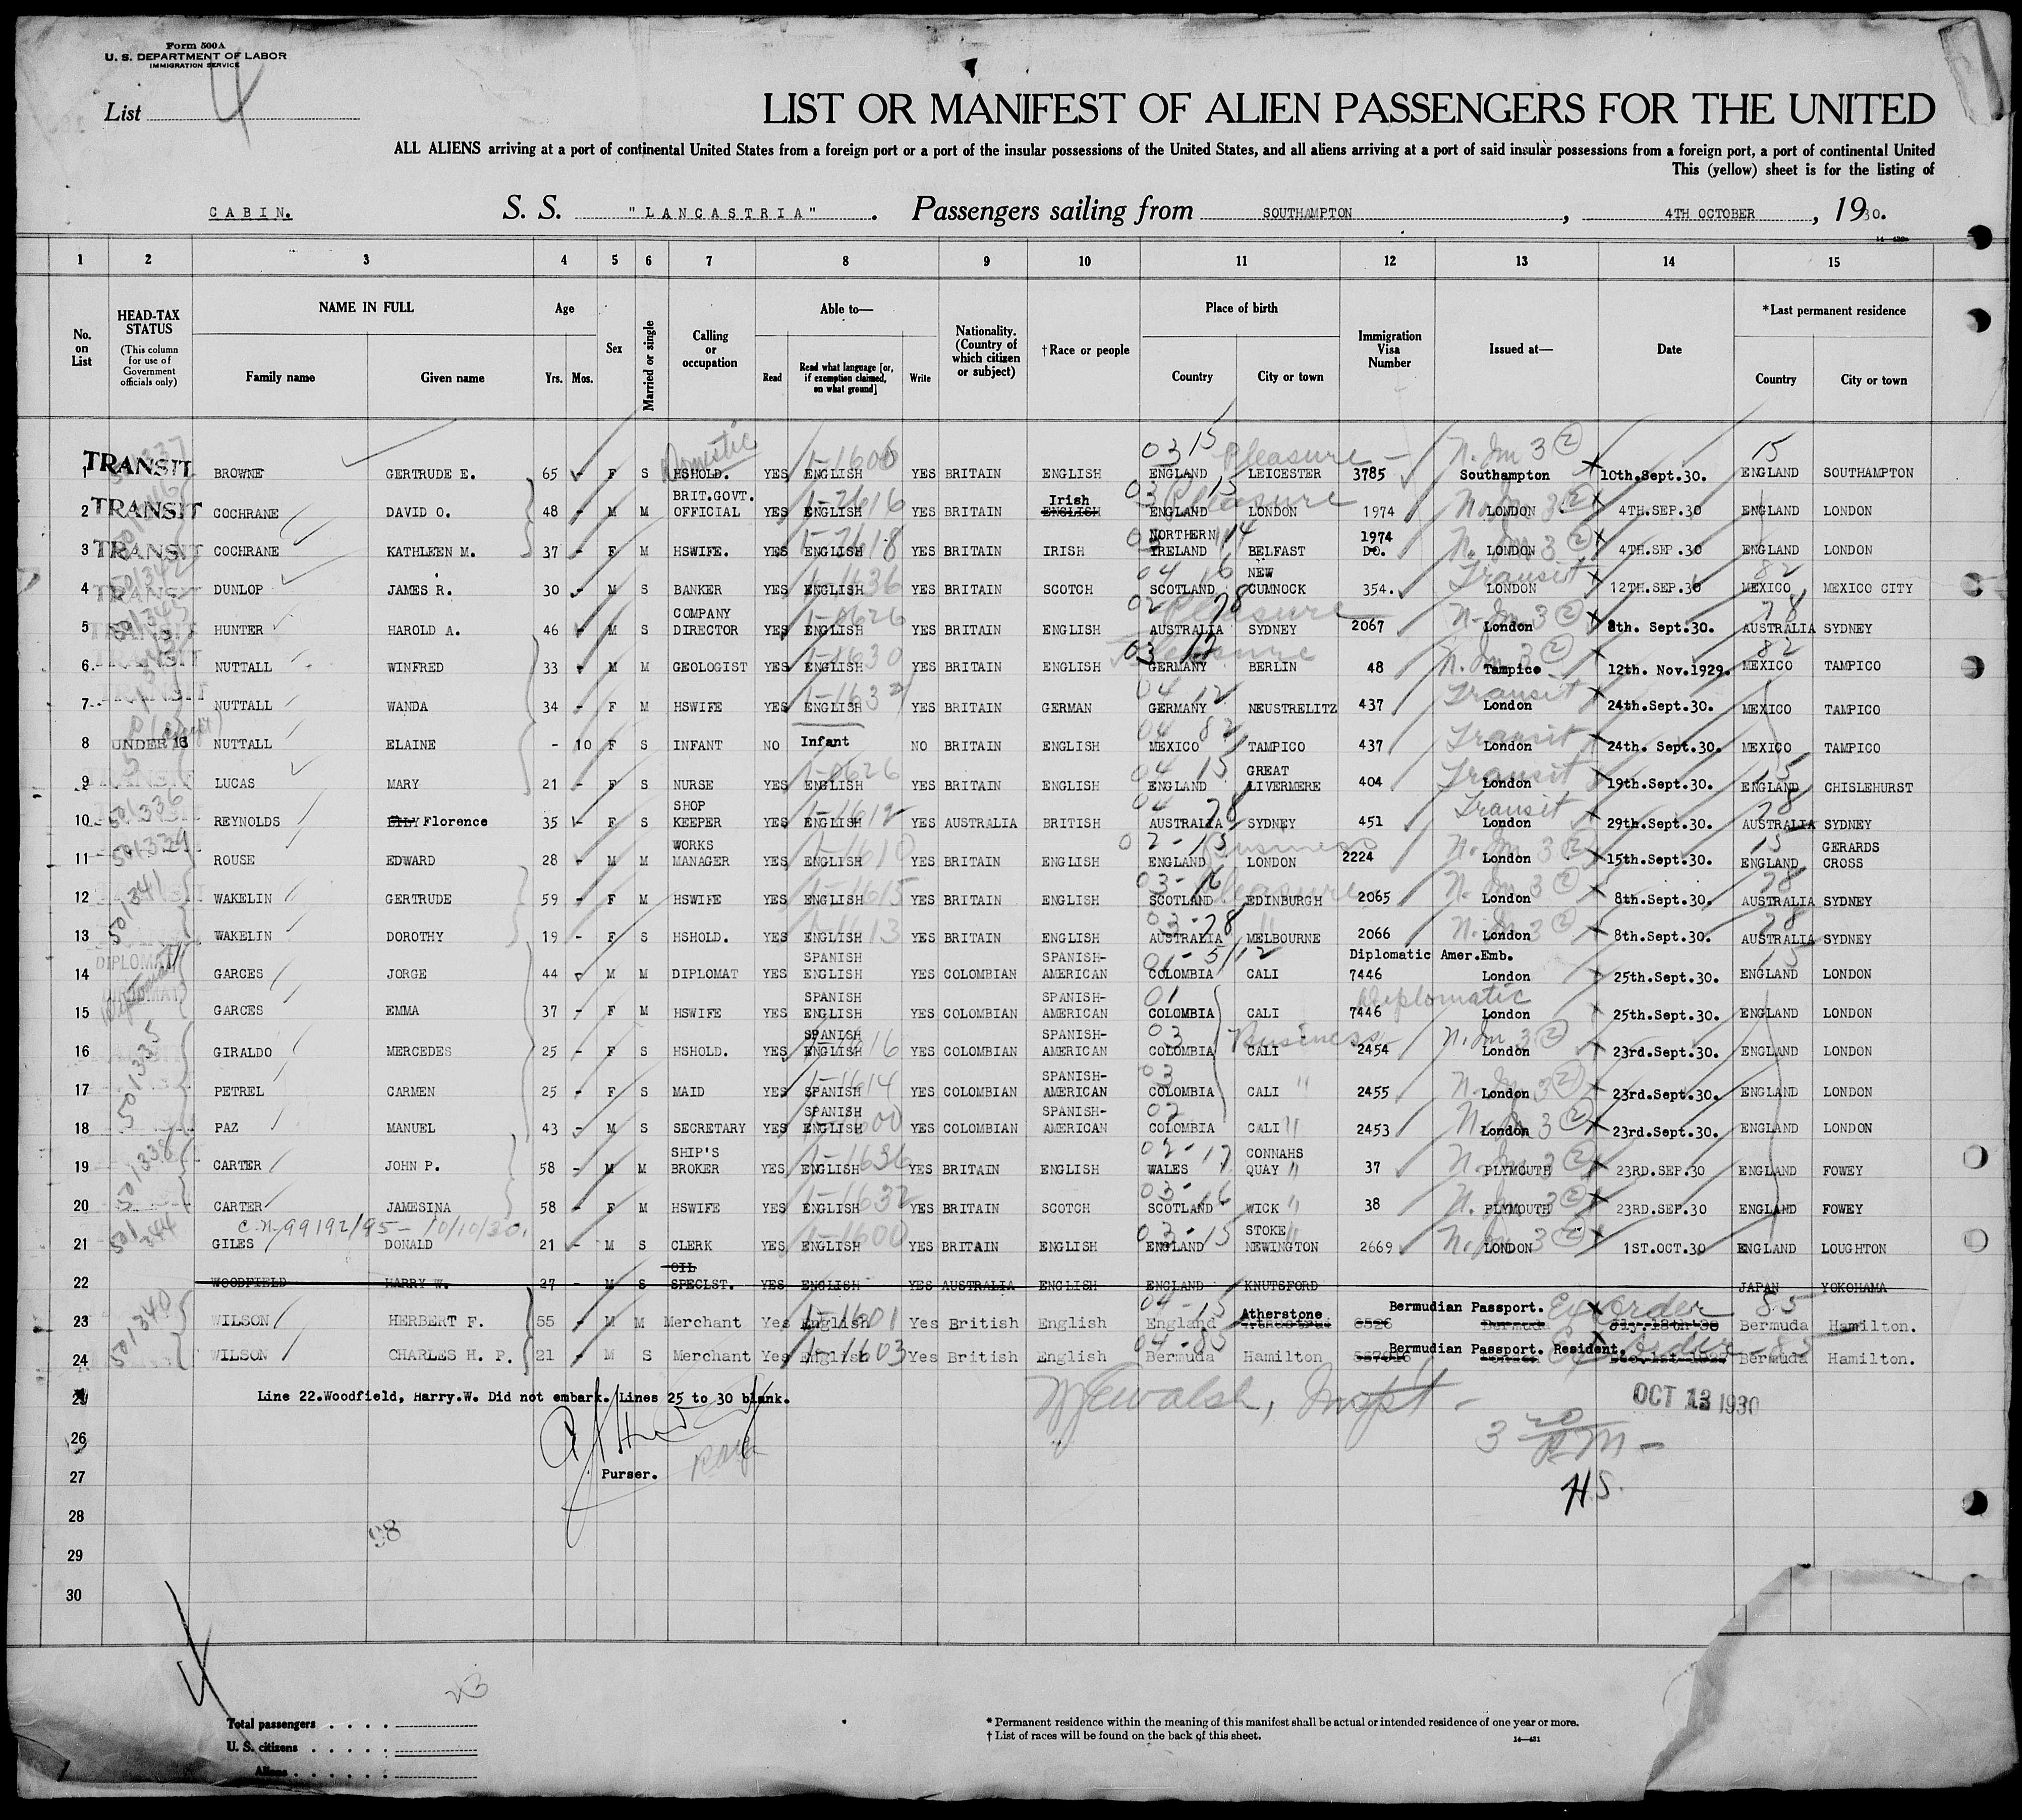 Form 500A
U. S. DEPARTMENT OF LABOR
IMMIGRATION SERVICE
List 4
LIST OR MANIFEST OF ALIEN PASSENGERS FOR THE UNITED
ALL ALIENS arriving at a port of continental United States from a foreign port or a port of the insular possessions of the United States, and all aliens arriving at a port of said insular possessions from a foreign port, a port of continental United
This (yellow) sheet is for the listing of
CABIN. S. S. "LANCASTRIA". Passengers sailing from SOUTHAMPTON, 4TH OCTOBER, 1930.
1 2 3 4 5 6 7 8 9 10 11 12 13 14 15
No. on List
HEAD-TAX STATUS (This column for use of Government officials only)
NAME IN FULL Family name Given name
Age Yrs. Mos.
Sex
Married or single
Calling or occupation
Able to— Read Read what language [or, if exemption claimed, on what ground] Write
Nationality. (Country of which citizen or subject)
†Race or people
Place of birth Country City or town
Immigration Visa Number
Issued at—
Date
*Last permanent residence Country City or town
1 TRANSIT BROWNE GERTRUDE E. 65 - F S HSHOLD. Domestic YES ENGLISH 1-1600 YES BRITAIN ENGLISH 03 15 Pleasure ENGLAND LEICESTER 3785 Southampton N. Im 3 (2) 10th.Sept.30. 15 ENGLAND SOUTHAMPTON
2 TRANSIT COCHRANE DAVID O. 48 - M M BRIT.GOVT. OFFICIAL YES ENGLISH YES BRITAIN Irish ENGLISH Pleasure ENGLAND LONDON 1974 LONDON 4TH.SEP.30 ENGLAND LONDON
3 TRANSIT COCHRANE KATHLEEN M. 37 - F M HSWIFE. YES ENGLISH YES BRITAIN IRISH NORTHERN IRELAND BELFAST 1974 DO. LONDON 4TH.SEP.30 ENGLAND LONDON
4 TRANSIT DUNLOP JAMES R. 30 - M S BANKER YES ENGLISH 1-1636 YES BRITAIN SCOTCH 04 16 SCOTLAND NEW CUMNOCK 354. Transit LONDON 12TH.SEP.30 82 MEXICO MEXICO CITY
5 TRANSIT HUNTER HAROLD A. 46 - M S COMPANY DIRECTOR YES ENGLISH YES BRITAIN ENGLISH 02 78 Pleasure AUSTRALIA SYDNEY 2067 London 8th. Sept.30. 78 AUSTRALIA SYDNEY
6 TRANSIT NUTTALL WINFRED 33 - M M GEOLOGIST YES ENGLISH 1-1630 YES BRITAIN ENGLISH 03 12 Pleasure GERMANY BERLIN 48 Tampico 12th. Nov.1929. 82 MEXICO TAMPICO
7 TRANSIT NUTTALL WANDA 34 - F M HSWIFE YES ENGLISH YES BRITAIN GERMAN 04 12 GERMANY NEUSTRELITZ 437 Transit London 24th.Sept.30. MEXICO TAMPICO
8 UNDER 16 NUTTALL ELAINE - 10 F S INFANT NO Infant NO BRITAIN ENGLISH 04 82 MEXICO TAMPICO 437 Transit London 24th. Sept.30. MEXICO TAMPICO
9 TRANSIT LUCAS MARY 21 - F S NURSE YES ENGLISH YES BRITAIN ENGLISH 04 15 ENGLAND GREAT LIVERMERE 404 Transit London 19th.Sept.30. 15 ENGLAND CHISLEHURST
10 501336 REYNOLDS Florence 35 - F S SHOP KEEPER YES ENGLISH 1-1612 YES AUSTRALIA BRITISH 04 78 AUSTRALIA SYDNEY 451 Transit London 29th.Sept.30. 78 AUSTRALIA SYDNEY
11 ROUSE EDWARD 28 - M M WORKS MANAGER YES ENGLISH 1-1610 YES BRITAIN ENGLISH 02-15 Business ENGLAND LONDON 2224 London 15th.Sept.30. 15 ENGLAND GERARDS CROSS
12 501341 WAKELIN GERTRUDE 59 - F M HSWIFE YES ENGLISH 1-1615 YES BRITAIN ENGLISH 03-16 Pleasure SCOTLAND EDINBURGH 2065 London 8th.Sept.30. 78 AUSTRALIA SYDNEY
13 WAKELIN DOROTHY 19 - F S HSHOLD. YES ENGLISH YES BRITAIN ENGLISH 03-78 AUSTRALIA MELBOURNE 2066 London 8th.Sept.30. 78 AUSTRALIA SYDNEY
14 DIPLOMAT GARCES JORGE 44 - M M DIPLOMAT YES SPANISH ENGLISH YES COLOMBIAN SPANISH-AMERICAN COLOMBIA CALI Diplomatic 7446 Amer.Emb. London 25th.Sept.30. ENGLAND LONDON
15 Diplomat GARCES EMMA 37 - F M HSWIFE YES SPANISH ENGLISH YES COLOMBIAN SPANISH-AMERICAN 01 COLOMBIA CALI Diplomatic 7446 London 25th.Sept.30. ENGLAND LONDON
16 GIRALDO MERCEDES 25 - F S HSHOLD. YES SPANISH ENGLISH YES COLOMBIAN SPANISH-AMERICAN 03 COLOMBIA Business CALI 2454 N. Im 3 (2) London 23rd.Sept.30. ENGLAND LONDON
17 501335 PETREL CARMEN 25 - F S MAID YES SPANISH 1-1614 YES COLOMBIAN SPANISH-AMERICAN 03 COLOMBIA CALI " 2455 London 23rd.Sept.30. ENGLAND LONDON
18 PAZ MANUEL 43 - M S SECRETARY YES SPANISH ENGLISH YES COLOMBIAN SPANISH-AMERICAN 02 COLOMBIA CALI " 2453 London 23rd.Sept.30. ENGLAND LONDON
19 501338 CARTER JOHN P. 58 - M M SHIP'S BROKER YES ENGLISH 1-1636 YES BRITAIN ENGLISH 02-17 WALES CONNAHS QUAY " 37 PLYMOUTH 23RD.SEP.30 ENGLAND FOWEY
20 CARTER JAMESINA 58 - F M HSWIFE YES ENGLISH 1-1632 YES BRITAIN SCOTCH 03-16 SCOTLAND WICK " 38 PLYMOUTH 23RD.SEP.30 ENGLAND FOWEY
99192/95 - 10/10/30.
21 501344 GILES DONALD 21 - M S CLERK YES ENGLISH 1-1600 YES BRITAIN ENGLISH 03-15 ENGLAND STOKE NEWINGTON " 2669 LONDON 1ST.OCT.30 ENGLAND LOUGHTON
22 WOODFIELD HARRY W. 27 - M S OIL SPECLST. YES ENGLISH YES AUSTRALIA ENGLISH ENGLAND KNUTSFORD JAPAN YOKOHAMA
23 501340 WILSON HERBERT F. 55 - M M Merchant Yes English 1-1601 Yes British English 04-15 England Atherstone 6526 Bermudian Passport. Ex Order 85 Bermuda Hamilton.
24 WILSON CHARLES H. P. 21 - M S Merchant Yes English 1-1603 Yes British English 04-85 Bermuda Hamilton Bermudian Passport. Resident. Ex Order - 85 Bermuda Hamilton.
Line 22.Woodfield, Harry.W. Did not embark. Lines 25 to 30 blank.
Walsh, Inspt -
OCT 13 1930
3 20 P.M -
H.S.
26
Purser.
27
28
98
29
30
4
23
Total passengers
U. S. citizens
Aliens
* Permanent residence within the meaning of this manifest shall be actual or intended residence of one year or more.
† List of races will be found on the back of this sheet.
14—421